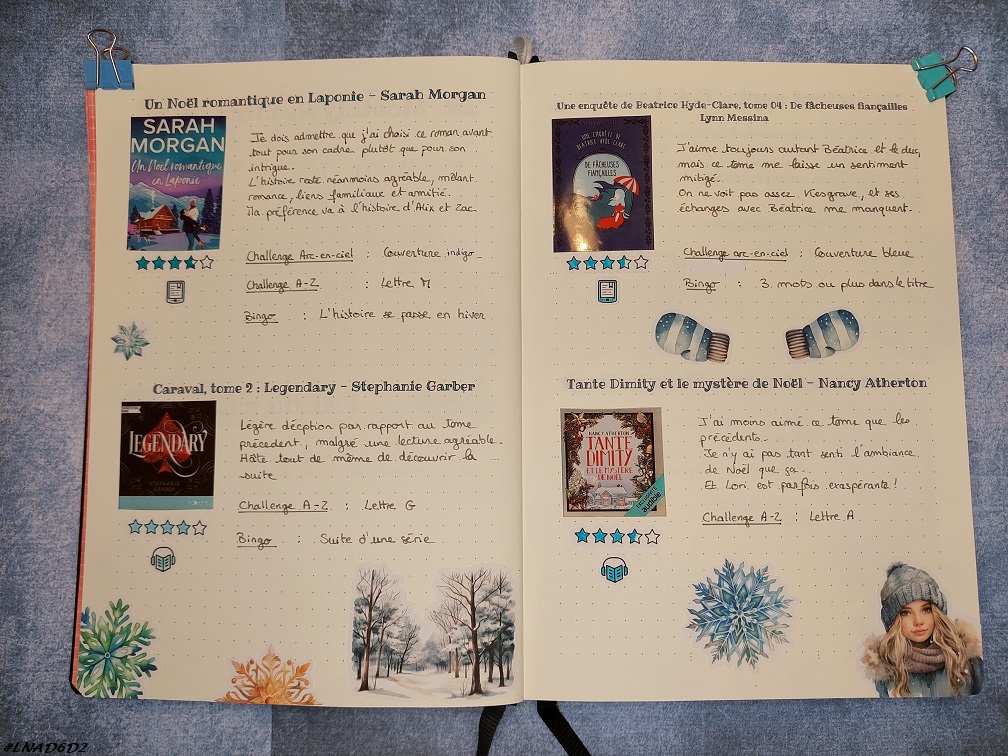 Un Noël romantique en Laponie - Sarah Morgan
SARAH
MORGAN
Un Noël romantique
en Laponie
Je dois admettre que j'ai choisi ce roman avant
tout pour son cadre plutôt que pour son
intrigue.
L'histoire reste néanmoins agréable, mêlant
romance, liens familiaux et amitié.
Ma préférence va à l'histoire d'Alix et Zac
Challenge Arc-en-ciel : Couverture indigo
Challenge A-Z : Lettre M
Bingo : L'histoire se passe en hiver
Caraval, tome 2 : Legendary - Stephanie Garber
LEGENDARY
STEPHANIE
GARBER
Légère décption par rapport au Tome
précedent, malgré une lecture agréable.
Hâte tout de même de découvrir la
suite
Challenge A-Z : Lettre G
Bingo : Suite d'une série
Une enquête de Beatrice Hyde-Clare, tome 04 : De fâcheuses fiançailles
Lynn Messina
UNE ENQUÊTE DE
BEATRICE HYDE-CLARE
DE FÂCHEUSES
FIANÇAILLES
J'aime toujours autant Béatrice et le duc,
mais ce tome me laisse un sentiment
mitigé.
On ne voit pas assez Kesgrave, et ses
échanges avec Béatrice me manquent.
Challenge arc-en-ciel : Couverture bleue
Bingo : 3 mots ou plus dans le titre
Tante Dimity et le mystère de Noël - Nancy Atherton
NANCY ATHERTON
TANTE
DIMITY
ET LE MYSTÈRE
DE NOËL
audible
J'ai moins aimé ce tome que les
précédents.
Je n'y ai pas tant senti l'ambiance
de Noël que ça.
Et Lori est parfois exaspérante !
Challenge A-Z : Lettre A
#LNAD6D2